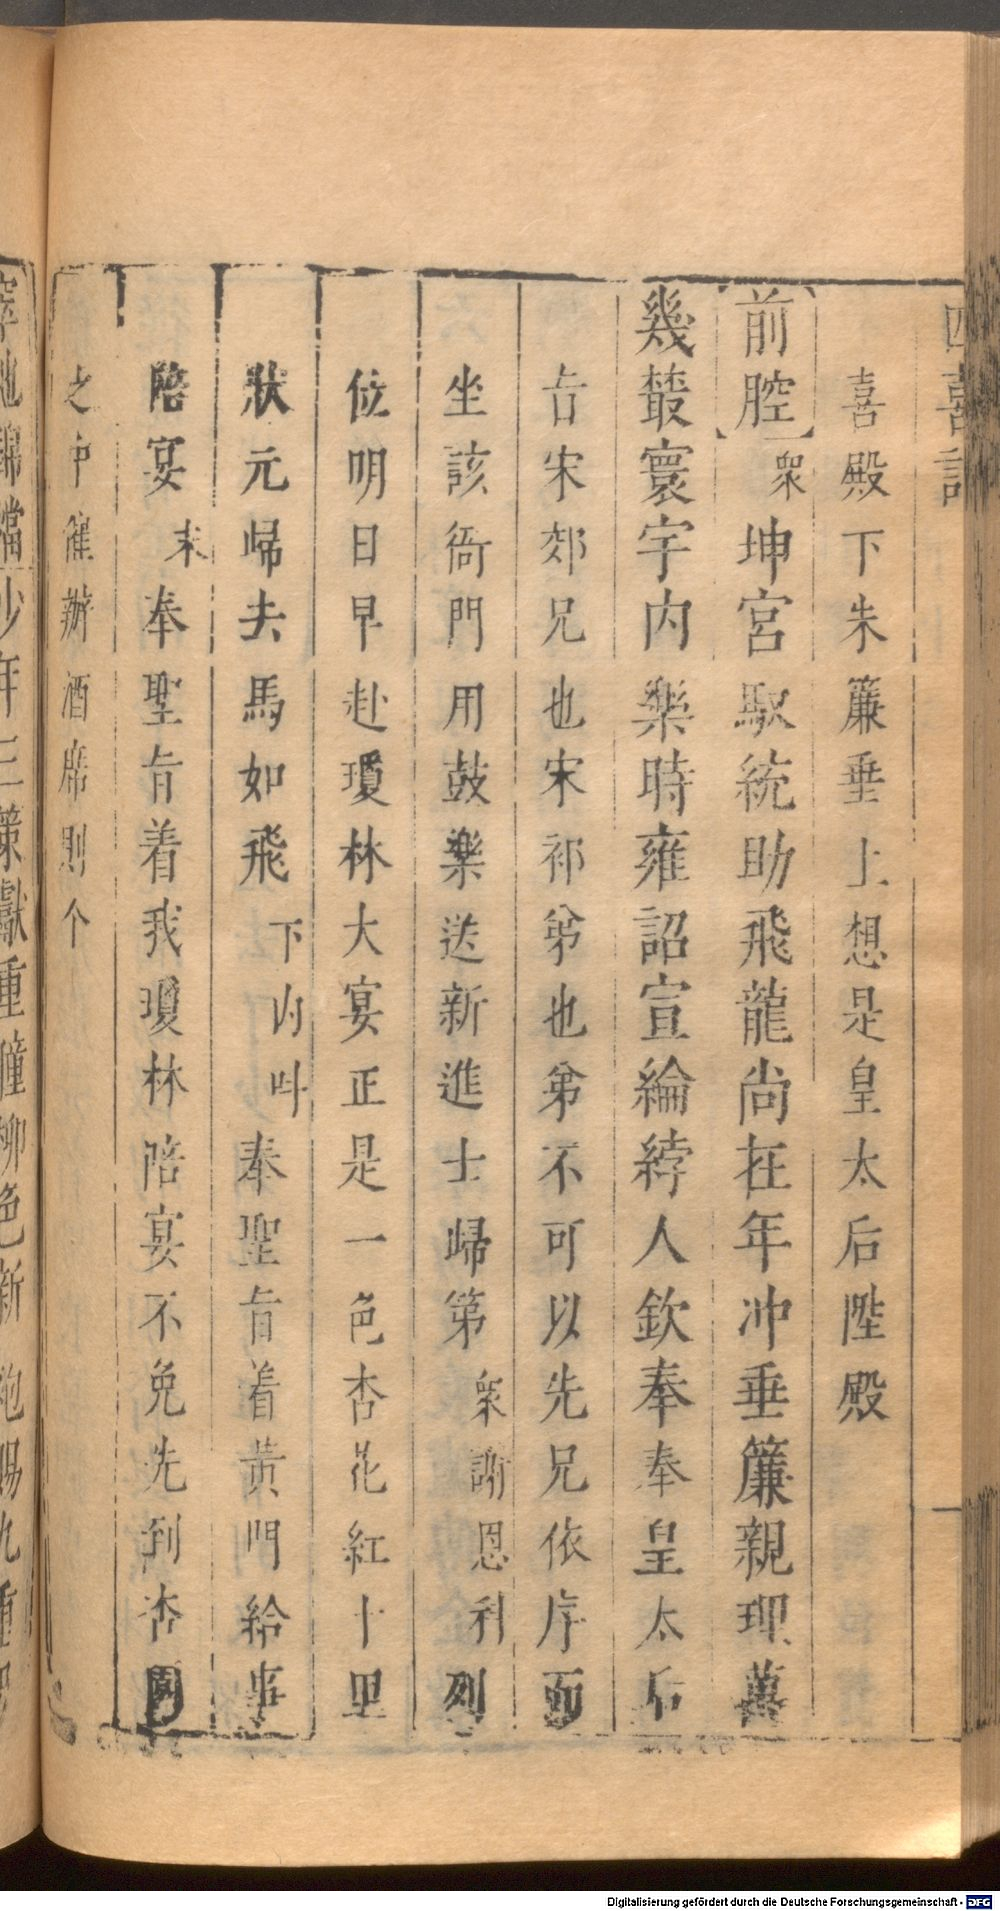 四喜記
喜殿下朱簾垂上想是皇太后陞殿
前腔衆坤宮馭統助飛龍尚在年冲垂簾親理萬
幾蕟寰宇内樂時雍詔宣綸綍人欽奉奉皇太后
旨宋郊兄也宋祁弟也弟不可以先兄依序而
坐該衙門用鼓樂送新進士歸第衆謝恩科列
位明日早赴瓊林大宴正是一色杏花紅十里
狀元歸去馬如飛下内叫奉聖旨着黃門給事
陪宴末奉聖旨着我瓊林陪宴不免先到杏園
之中催辦酒席則个
少年三策獻重瞳柳色新袍賜九重
Digitalisierung gefördert durch die Deutsche Forschungsgemeinschaft - DFG